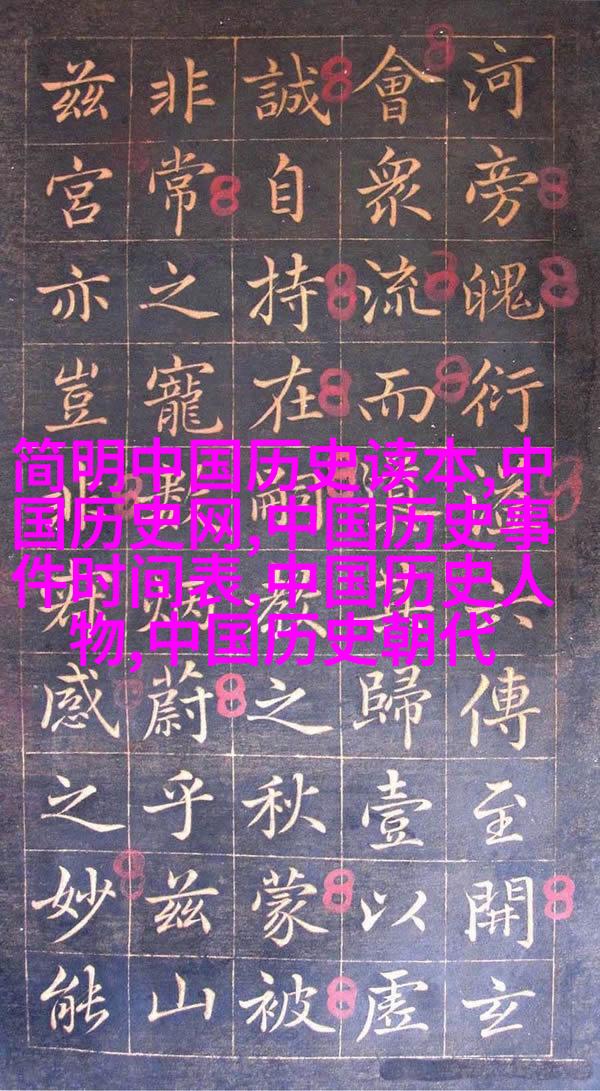 河旁魄衍六傳至開玄
會衆流而歸壹以虛
誠自持在嗣之秋蒙被
非常之寵蔚乎兹山
兹宮亦豈感之妙能
简明中国历史读本,中
国历史网,中国历史事
件时间表,中国历史人
物,中国历史朝代